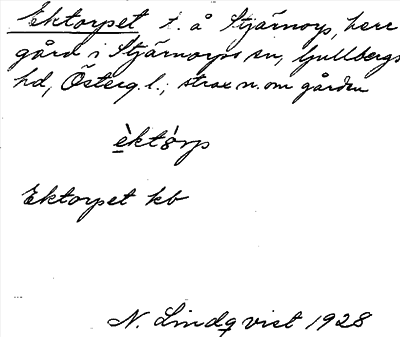 Ektorpet t. å Stjärnorp, herr
gård i Stjärnorps sn, Gullbergs
hd, Österg. l.; strax n. om gården
èktórp
Ektorpet kb
N. Lindqvist 1928